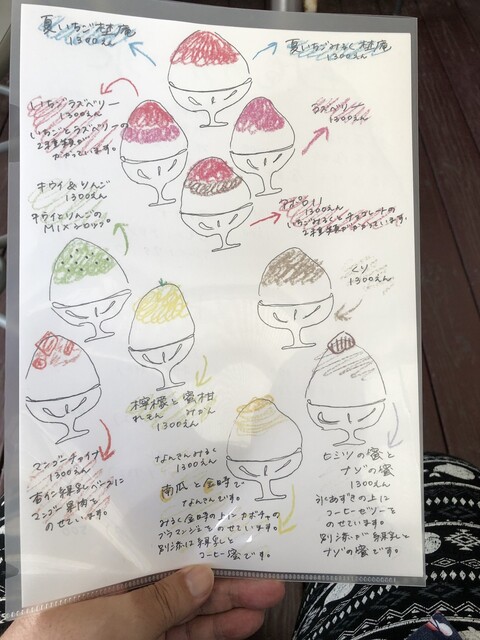 夏いちご
1300えん
夏いちごみるく
1300えん
いちごラズベリー
1300えん
いちごとラズベリーの
2種類が
かかっています。
ラズベリー
1300えん
キウイ&りんご
1300えん
キウイとりんごの
MIXシロップ。
ナポリ
1300えん
いちごみるくとチョコレートの
2種類がかかっています。
くり
1300えん
檸檬と蜜柑
れもん みかん
1300えん
マンゴーチャイ
1300えん
練乳ベースに
マンゴー果肉を
のせています。
なんきんみるく
1300えん
南瓜と金時で
なんきんです。
みるく金時の上にカボチャの
ブラマンジェをのせています。
別添は練乳と
コーヒー蜜です。
ヒミツの蜜と
ナゾの蜜
1300えん
氷あずきの上に
コーヒーゼリーを
のせています。
別添が練乳と
ナゾの蜜です。